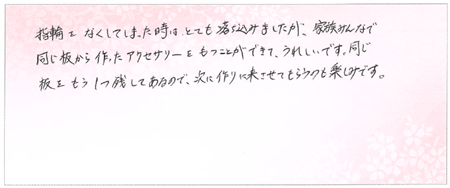 指輪をなくしてしまった時は、とても落ち込みましたが、家族みんなで
同じ板から作ったアクセサリーをもつことができて、うれしいです。同じ
板をもう1つ残してあるので、次に作りに来させてもらうのも楽しみです。